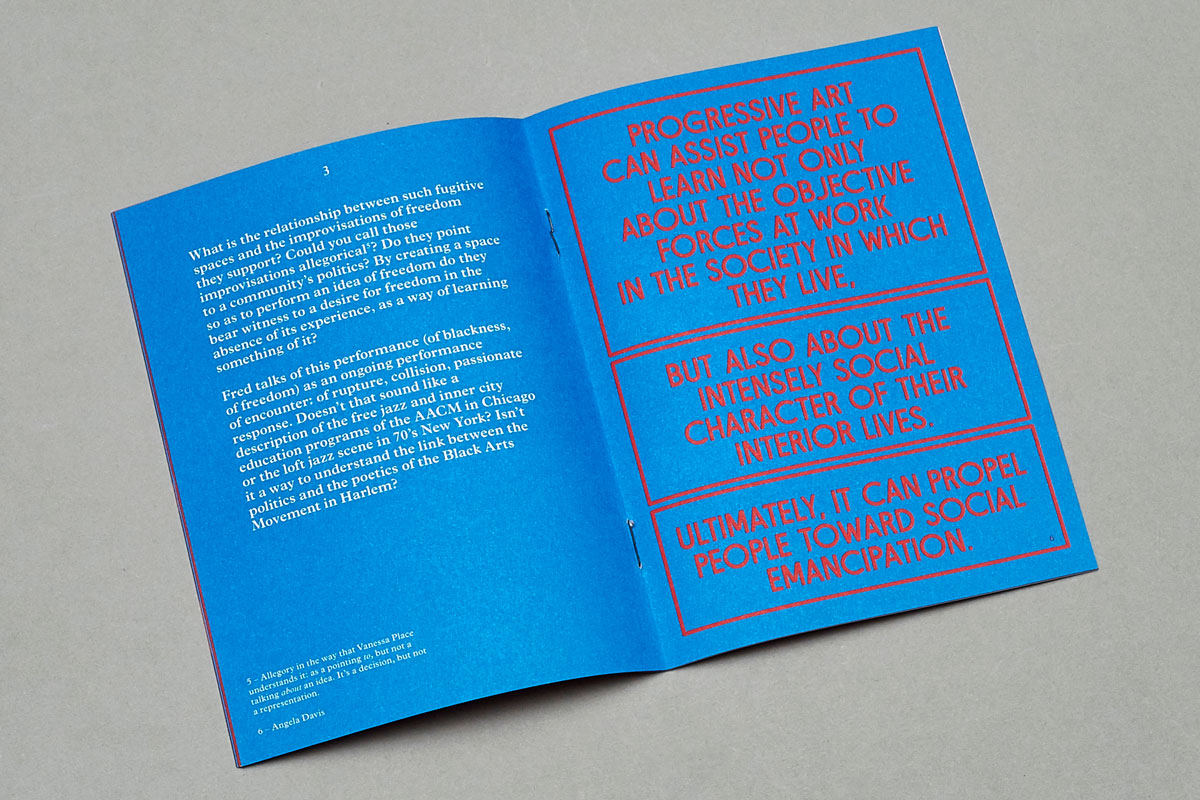 3
What is the relationship between such fugitive
spaces and the improvisations of freedom
they support? Could you call those
improvisations allegorical⁵? Do they point
to a community's politics? By creating a space
so as to perform an idea of freedom do they
bear witness to a desire for freedom in the
absence of its experience, as a way of learning
something of it?
Fred talks of this performance (of blackness,
of freedom) as an ongoing performance
of encounter: of rupture, collision, passionate
response. Doesn't that sound like a
description of the free jazz and inner city
education programs of the AACM in Chicago
or the loft jazz scene in 70's New York? Isn't
it a way to understand the link between the
politics and the poetics of the Black Arts
Movement in Harlem?
5 – Allegory in the way that Vanessa Place
understands it: as a pointing to, but not a
talking about an idea. It's a decision, but not
a representation.
6 – Angela Davis
PROGRESSIVE ART
CAN ASSIST PEOPLE TO
LEARN NOT ONLY
ABOUT THE OBJECTIVE
FORCES AT WORK
IN THE SOCIETY IN WHICH
THEY LIVE,
BUT ALSO ABOUT THE
INTENSELY SOCIAL
CHARACTER OF THEIR
INTERIOR LIVES.
ULTIMATELY, IT CAN PROPEL
PEOPLE TOWARD SOCIAL
EMANCIPATION.
6